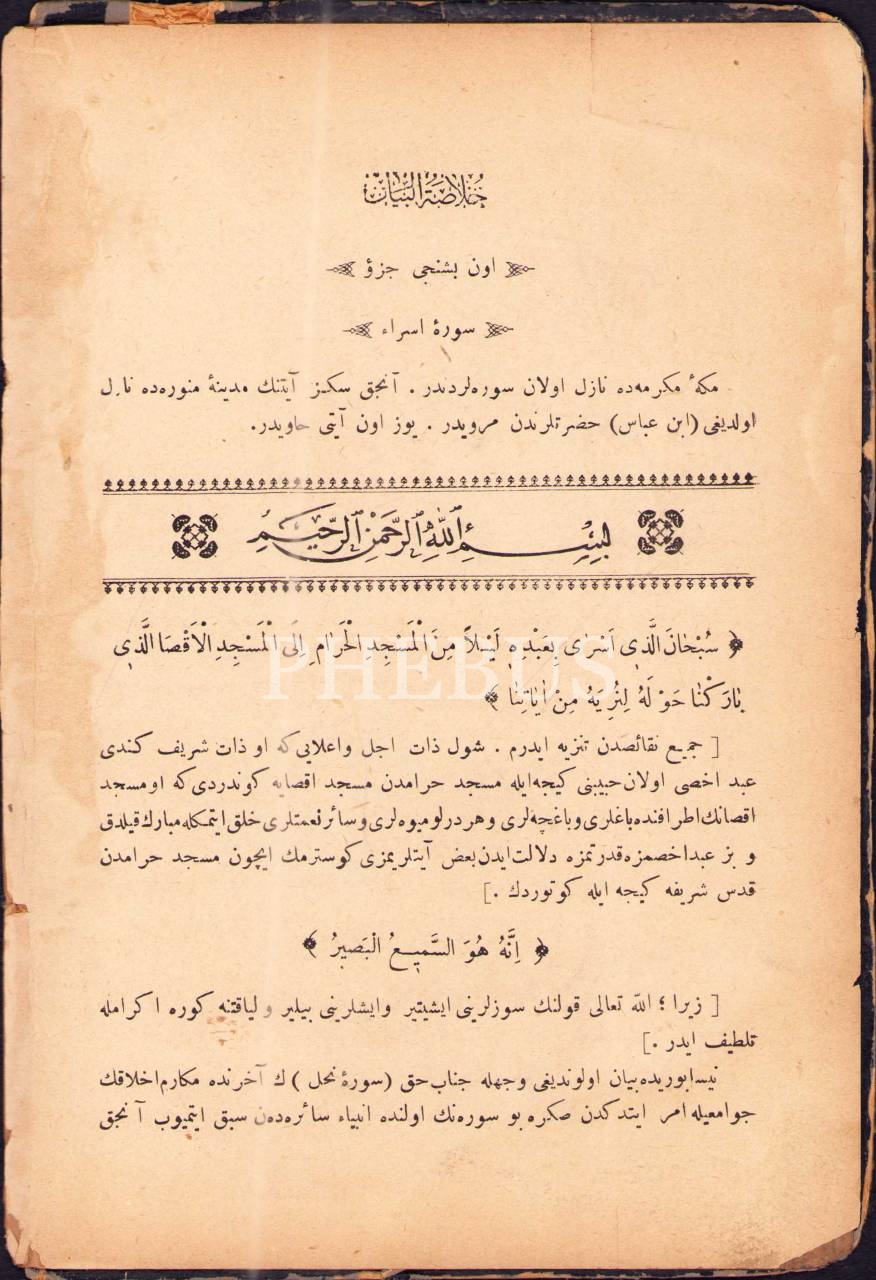 خُلاصَةُ البَيَان
اون بشنجی جزؤ
سورهٔ اسراء
مکهٔ مکرمه‌ده نازل اولان سوره‌لردندر . آنجق سکز آیتنك مدینهٔ منوره‌ده نازل
اولدیغی (ابن عباس) حضرتلرندن مرویدر . یوز اون آیتی حاویدر.
بِسْمِ ٱللّٰهِ ٱلرَّحْمٰنِ ٱلرَّحِيمِ
﴿ سُبْحَانَ الَّذٖى اَسْرٰى بِعَبْدِهٖ لَيْلاً مِنَ الْمَسْجِدِ الْحَرَامِ اِلَى الْمَسْجِدِ الْاَقْصَا الَّذٖى
بَارَكْنَا حَوْلَهُ لِنُرِيَهُ مِنْ اٰيَاتِنَا ﴾
PHEBUS
[ جمیع نقائصدن تنزیه ایدرم . شول ذات اجل واعلایی که او ذات شریف کندی
عبد اخصی اولان حبیبنی کیجه ایله مسجد حرامدن مسجد اقصایه کوندردی که او مسجد
اقصانك اطرافنده باغلری و باغچه‌لری و هر درلو میوه‌لری و سائر نعمتلری خلق ایتمکله مبارك قیلدق
و بز عبد اخصمزه قدرتمزه دلالت ایدن بعض آیتلریمزی کوسترمك ایچون مسجد حرامدن
قدس شریفه کیجه ایله کوتوردك .]
﴿ اِنَّهُ هُوَ السَّمٖيعُ الْبَصٖيرُ ﴾
[ زیرا ؛ الله تعالی قولنك سوزلرینی ایشیتیر وایشلرینی بیلیر و لیاقتنه کوره اکرامله
تلطیف ایدر .]
نیسابوریده بیان اولوندیغی وجهله جناب حق (سورهٔ نحل ) ك آخرنده مکارم اخلاقك
جوامعیله امر ایتدکدن صکره بو سوره‌نك اولنده انبیاء سائره‌دن سبق ایتمیوب آنجق